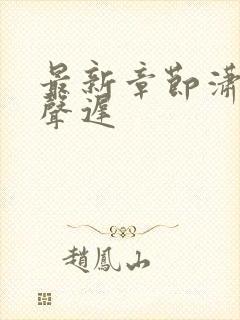 最新章节潇
聲遲
趙鳳山